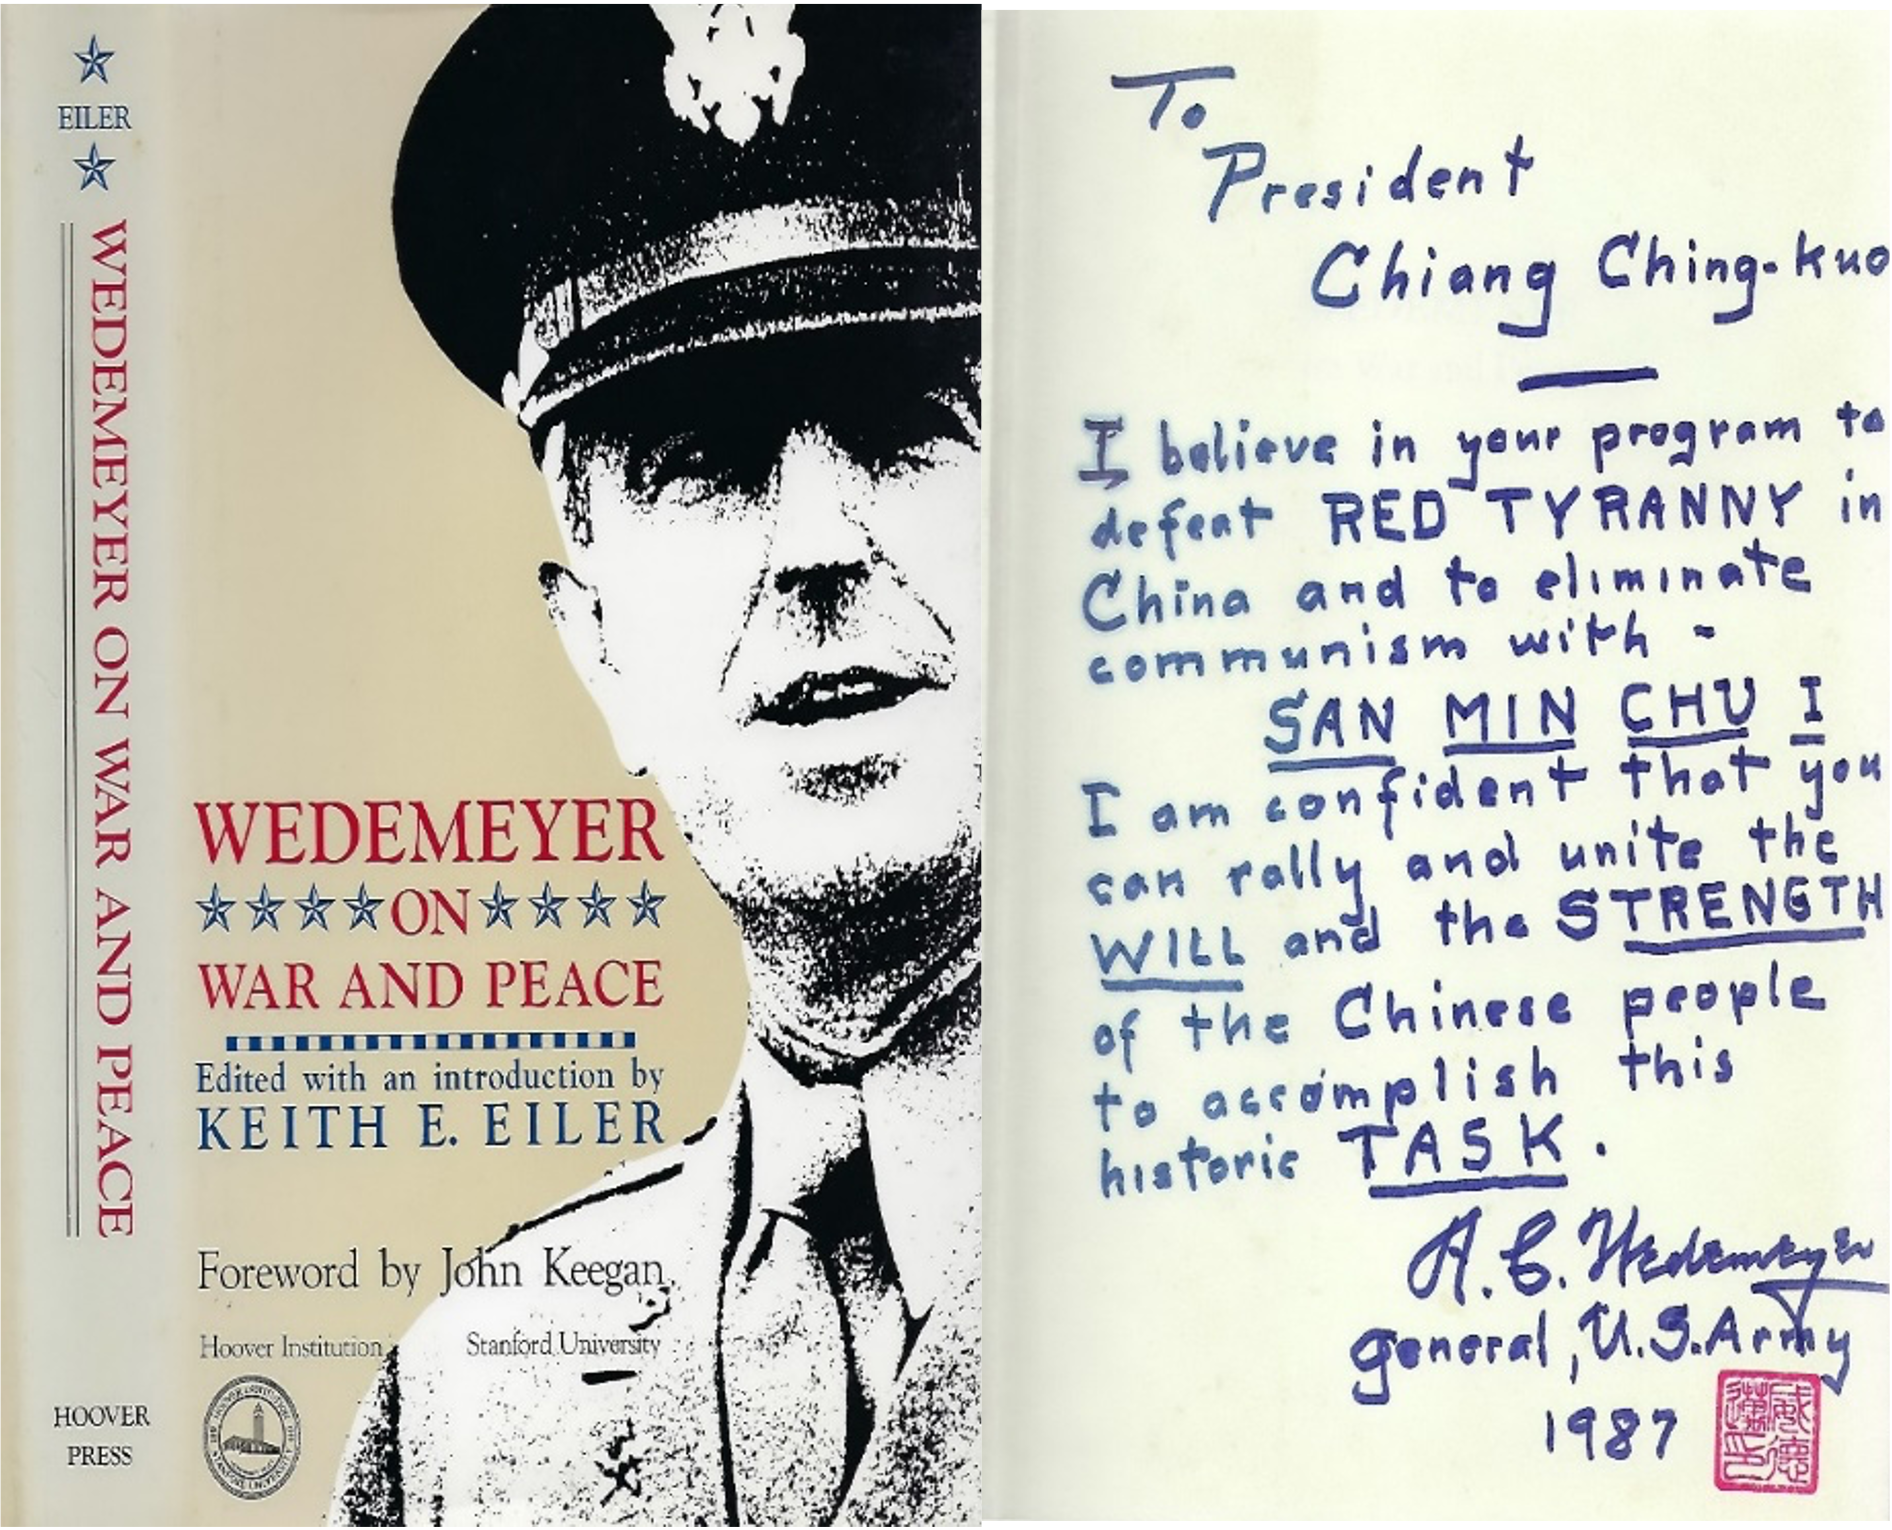 EILER
WEDEMEYER ON WAR AND PEACE
HOOVER
PRESS
WEDEMEYER
ON
WAR AND PEACE
Edited with an introduction by
KEITH E. EILER
Foreword by John Keegan
Hoover Institution
Stanford University
To
President
Chiang Ching-kuo
I believe in your program to
defeat RED TYRANNY in
China and to eliminate
communism with -
SAN MIN CHU I
I am confident that you
can rally and unite the
WILL and the STRENGTH
of the Chinese people
to accomplish this
historic TASK.
A. C. Wedemeyer
General, U.S. Army
1987